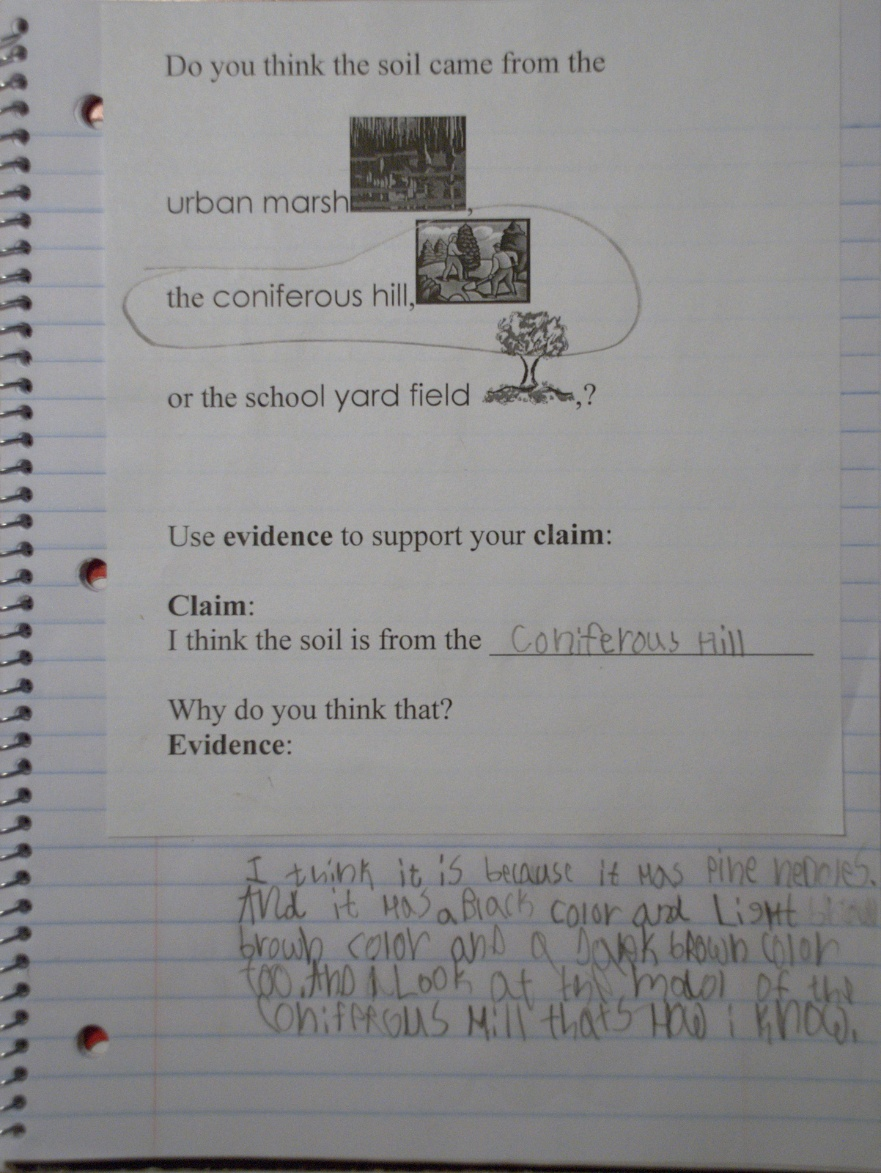 Do you think the soil came from the
urban marsh,
the coniferous hill,
or the school yard field ,?
Use evidence to support your claim:
Claim:
I think the soil is from the Coniferous Hill
Why do you think that?
Evidence:
I think it is because it Has Pine nednles.
And it Has a Black color and Light
brown color and a Dark brown color
too. And I Look at the madol of the
Coniferous Hill thats How i know.